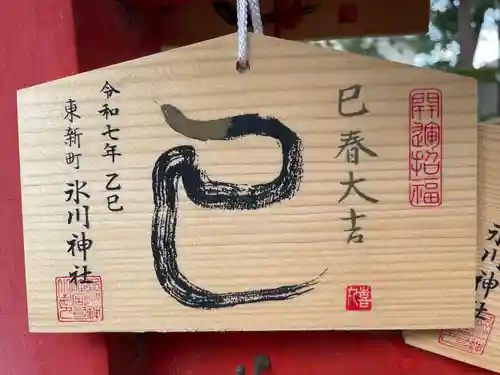 開運招福
巳春大吉
巳
令和七年 乙巳
東新町 氷川神社
氷川神社